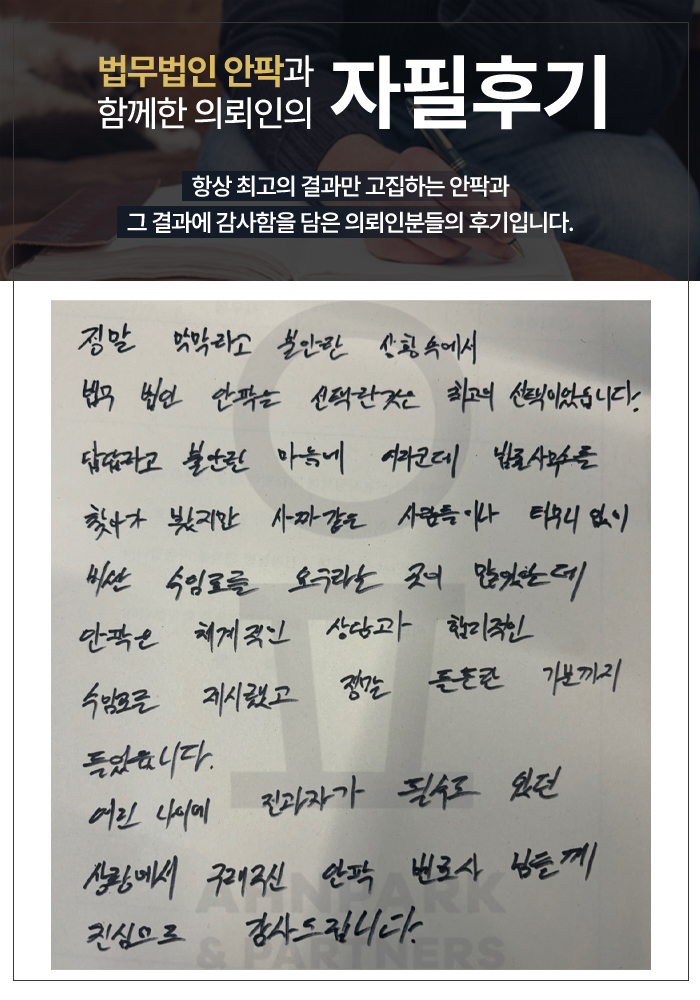 법무법인 안팍과
함께한 의뢰인의
자필후기
항상 최고의 결과만 고집하는 안팍과
그 결과에 감사함을 담은 의뢰인분들의 후기입니다.
정말 막막하고 불안한 상황 속에서
법무 법인 안팍을 선택한것은 최고의 선택이었습니다!
답답하고 불안한 마음에 여러군데 법률사무소를
찾아가 봤지만 사짜같은 사람들이나 터무니 없이
비싼 수임료를 요구하는 곳이 많았는데
안팍은 체계적인 상담과 합리적인
수임료를 제시했고 정말 든든한 기분까지
들었습니다.
어린 나이에 전과자가 될수도 있던
상황에서 구해주신 안팍 변호사 님들께
진심으로 감사드립니다!
AHNPARK
& PARTNERS